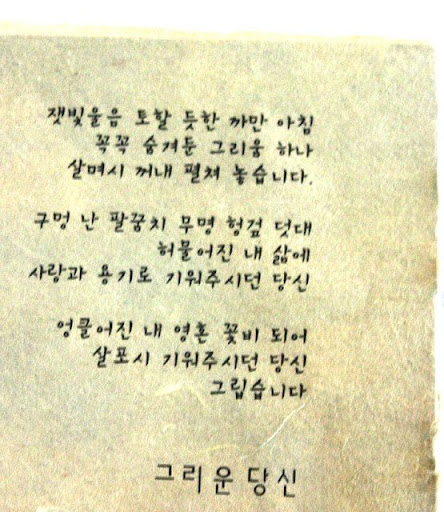 잿빛울음 토할 듯한 까만 아침
꼭꼭 숨겨둔 그리움 하나
살며시 꺼내 펼쳐 놓습니다.
구멍 난 팔꿈치 무명 헝겊 덧대
허물어진 내 삶에
사랑과 용기로 기워주시던 당신
엉클어진 내 영혼 꽃비 되어
살포시 기워주시던 당신
그립습니다
그리운 당신